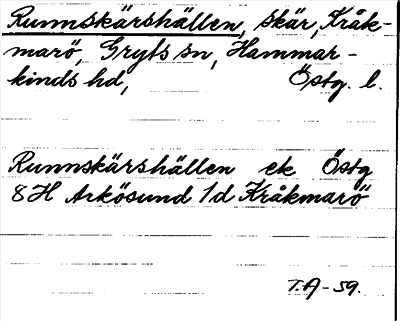 Runnskärshällen, skär, Kråk-
marö, Gryts sn, Hammar-
kinds hd, Östg. l.
Runnskärshällen ek Östg
8H Arkösund 1d Kråkmarö
T.A-59.